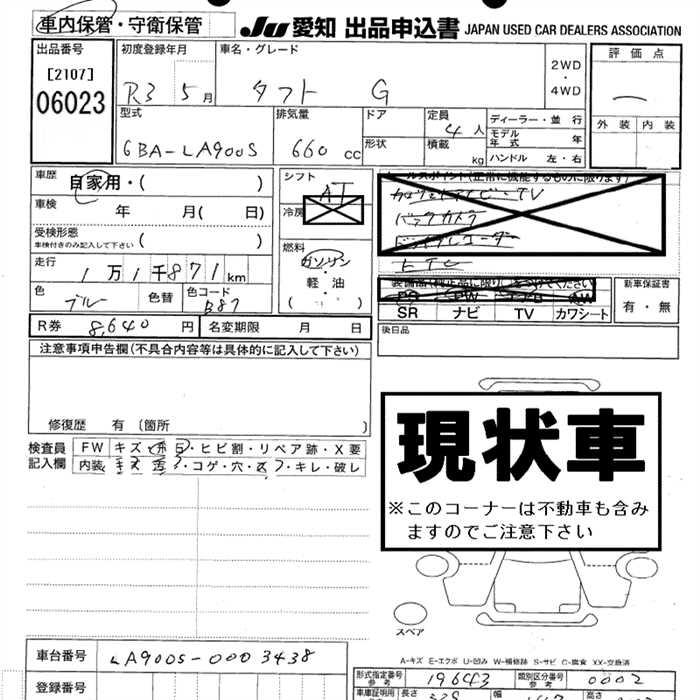 車内保管・守衛保管
JU 愛知 出品申込書 JAPAN USED CAR DEALERS ASSOCIATION
出品番号
[2107]
06023
初度登録年月
R3 5月
車名・グレード
タフト G
2WD
・
4WD
評価点
外装 内装
型式
6BA-LA900S
排気量
660 cc
ドア
形状
定員
4人
積載
kg
ディーラー・並 行
モデル年式 年
ハンドル 左・右
車歴
自家用・( )
車検
年 月( 日)
受検形態
車検付きのみ記入して下さい ( )
走行
1万1千871km
色
ブルー
色替
色コード
B87
シフト
AT
冷房
燃料
ガソリン
・
軽油
( )
セールスポイント(正常に機能するものに限ります)
バックカメラ
ETC
SR ナビ TV カワシート
新車保証書
有・無
後日品
R券 8,640円
名変期限 月 日
注意事項申告欄(不具合内容等は具体的に記入して下さい)
修復歴 有 〔箇所 〕
検査員
記入欄
FW キズ・ヒビ割・リペア跡・X要
内装 コゲ・穴・スレ・キレ・破レ
現状車
※このコーナーは不動車も含み
ますのでご注意下さい
スペア
A-キズ E-エクボ U-凹み W-補修跡 S-サビ C-腐食 XX-交換済
車台番号 LA900S-0003438
登録番号
形式指定番号
参考
19643
類別区分番号
参考
0002
車庫証明用
長さ
高さ